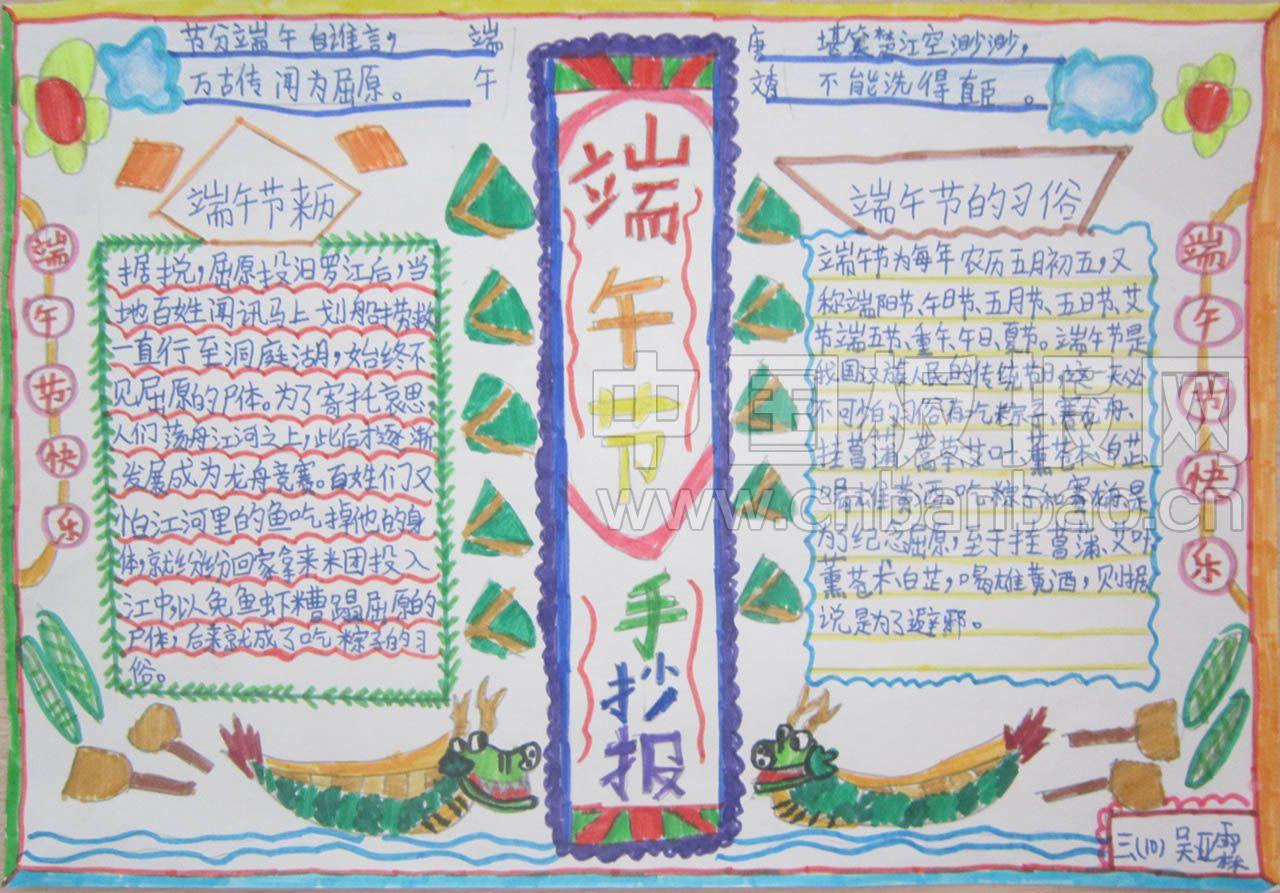 节分端午自谁言,
端
万古传闻为屈原。
午
唐
堪笑楚江空渺渺,
文秀
不能洗得直臣。
端午节手抄报
端午节来历
据说,屈原投汨罗江后,当
地百姓闻讯马上划船捞救
一直行至洞庭湖,始终不
见屈原的尸体。为了寄托哀思
人们荡舟江河之上,此后才逐渐
发展成为龙舟竞赛。百姓们又
怕江河里的鱼吃掉他的身
体,就纷纷回家拿来米团投入
江中,以免鱼虾糟蹋屈原的
尸体,后来就成了吃粽子的习
俗。
端午节的习俗
端午节为每年农历五月初五,又
称端阳节、午日节、五月节、五日节、艾
节端五节、重午、午日、夏节。端午节是
我国汉族人民的传统节日这一天必
不可少习俗有吃粽子、赛龙舟、
挂菖蒲、蒿草艾叶、薰苍术、白芷
喝雄黄酒。吃粽子和赛龙舟是
为了纪念屈原,至于挂菖蒲、艾叶
薰苍术、白芷,喝雄黄酒,则据
说是为了避邪。
端午节快乐
端午节快乐
三(10)吴亚霖
中国板报网
www.cnbanbao.cn